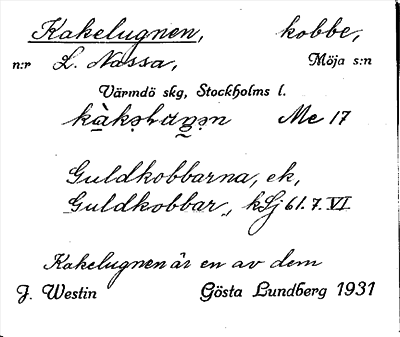 Kakelugnen, kobbe,
n:r L. Nassa, Möja s:n
Värmdö skg, Stockholms l.
Me 17
Guldkobbarna, ek,
Guldkobbar, kSj 61.7.VI
Kakelugnen är en av dem
J. Westin Gösta Lundberg 1931